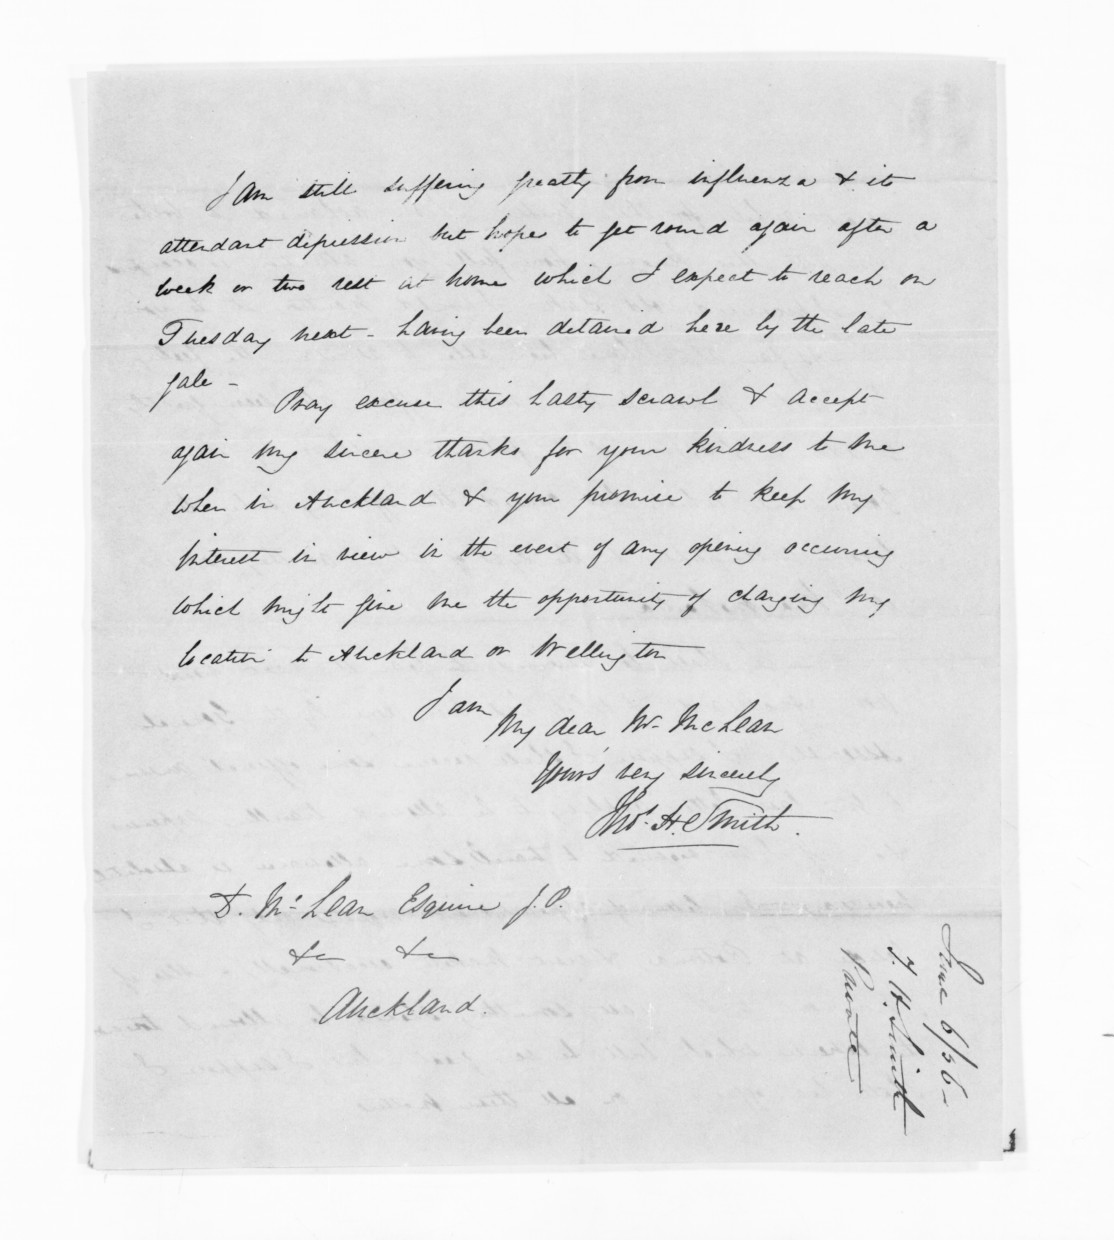 I am still suffering greatly from influenza & its
attendant depression but hope to get round again after a
week or two rest at home which I expect to reach on
Tuesday next - having been detained here by the late
gale -
Pray excuse this hasty scrawl & accept
again my sincere thanks for your kindness to me
when in Auckland & your promise to keep my
interest in view in the event of any opening occurring
which might give me the opportunity of changing my
location to Auckland or Wellington
I am
My dear Mr. McLean
Yours very sincerely
Thos. H. Smith.
D. McLean Esquire J.P.
&c &c
Auckland.
June 6/56-
T. H. Smith
Private